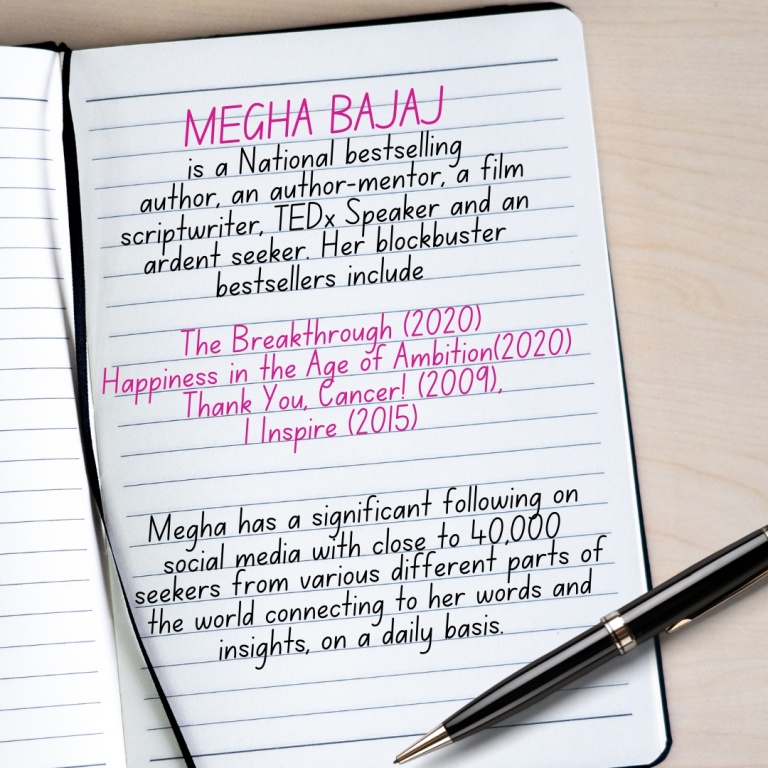 MEGHA BAJAJ
is a National bestselling
author, an author-mentor, a film
scriptwriter, TEDx Speaker and an
ardent seeker. Her blockbuster
bestsellers include
The Breakthrough (2020)
Happiness in the Age of Ambition(2020)
Thank You, Cancer! (2009),
I Inspire (2015)
Megha has a significant following on
social media with close to 40,000
seekers from various different parts of
the world connecting to her words and
insights, on a daily basis.